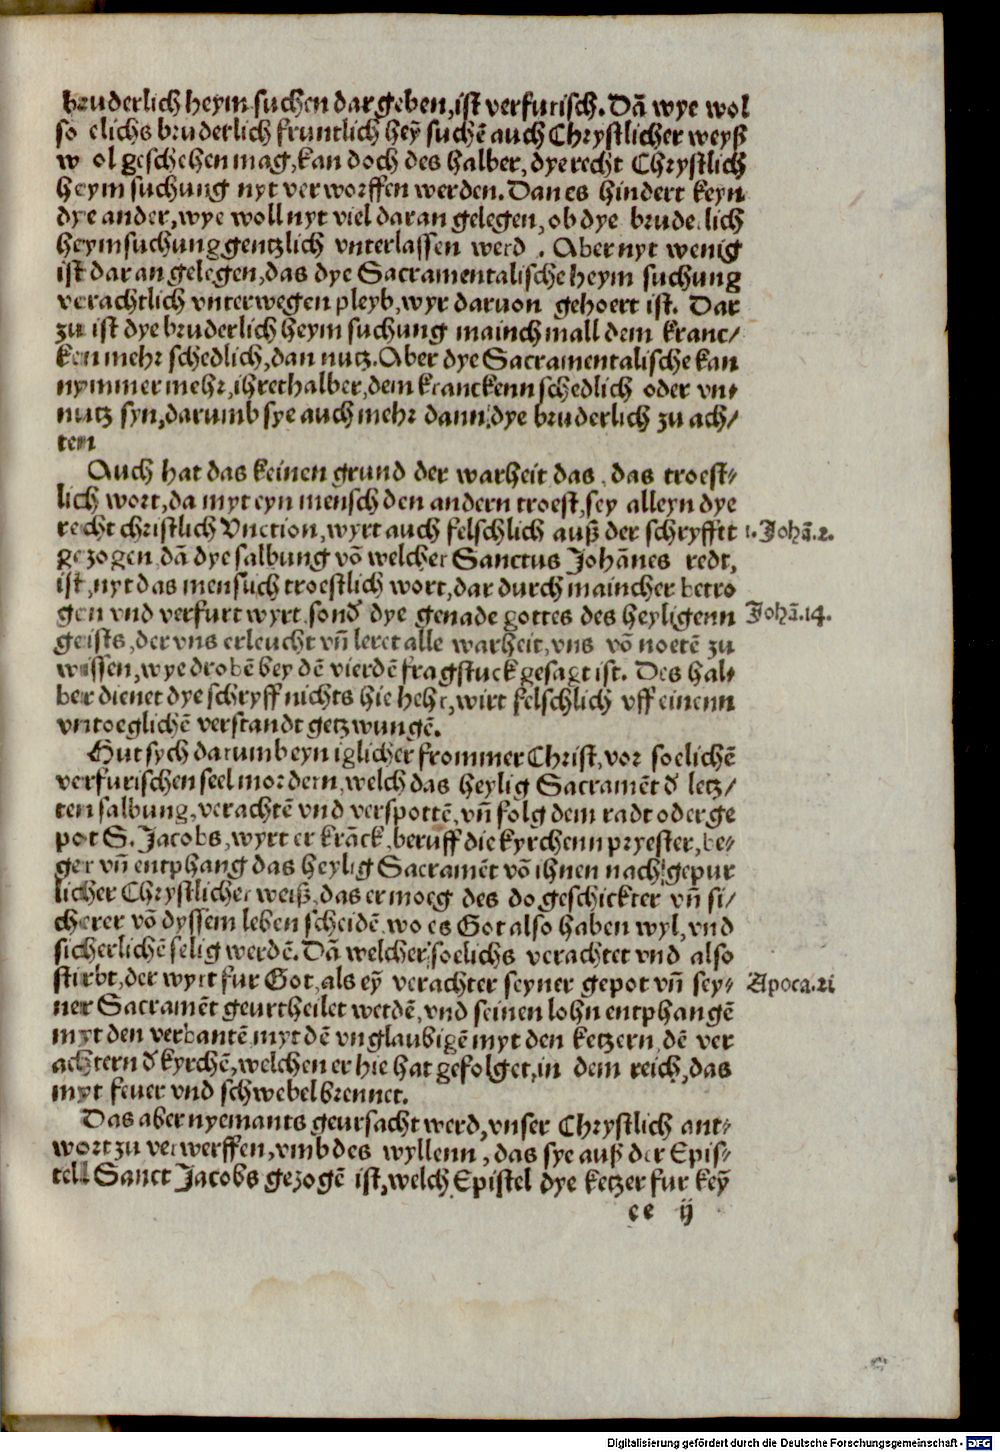 bruderlich heym suchen dar geben, ist verfurisch. Dā wye wol
so elichs bruderlich fruntlich heȳ suchē auch Chrystlicher weyß
w ol geschehen mag, kan doch des halber, dye recht Chrystlich
heym suchung nyt ver worffen werden. Dan es hindert keyn
dye ander, wye woll nyt viel daran gelegen, ob dye brude lich
heymsuchung gentzlich vnterlassen werd . Aber nyt wenig
ist dar an gelegen, das dye Sacramentalische heym suchung
verachtlich vnterwegen pleyb, wyr daruon gehoert ist. Dar
zu ist dye bruderlich heym suchung mainch mall dem kranc/
ken mehr schedlich, dan nutz. Aber dye Sacramentalische kan
nymmer mehr, ihrethalber, dem kranckenn schedlich oder vn⸗
nutz syn, darumb sye auch mehr dann, dye bruderlich zu ach/
ten
Auch hat das keinen grund der warheit das, das troest⸗
lich wort, da myt eyn mensch den andern troest, sey alleyn dye
recht christlich Vnction, wyrt auch felschlich auß der schryfftt
1. Johā. 2.
gezogen, dā dye salbung vō welcher Sanctus Johānes redt,
ist, nyt das menslich troestlich wort, dar durch maincher betro
gen vnd verfurt wyrt, sonđ dye genade gottes des heyligenn
Johā. 14.
geists, der vns erleucht vn̄ leret alle warheit, vns vō noetē zu
wissen, wye drobē bey dē vierdē fragstuck gesagt ist. Des hal⸗
ber dienet dye schryff nichts hie hehr, wirt felschlich vff einenn
vntoeglichē verstandt getzwungē.
Hut sych darumb eyn iglicher frommer Christ, vor soelichē
verfurischen seel mordern, welch das heylig Sacramēt đ letz/
ten salbung, verachtē vnd verspottē, vn̄ folg dem radt oder ge
pot S. Jacobs, wyrt er krāck, beruff die kyrchenn pryester, be⸗
ger vn̄ entphang das heylig Sacramēt vō ihnen nach gepur
licher Chrystlicher weiß, das er moeg des do geschickter vn̄ si/
cherer vō dyssem leben scheidē, wo es Got also haben wyl, vnd
sicherlichē selig werdē. Dā welcher soelichs verachtet vnd also
stirbt, der wyrt fur Got, als eȳ verachter seyner gepot vn̄ sey⸗
Apoca. 21
ner Sacramēt geurtheilet werdē, vnd seinen lohn entphangē
myt den verbantē, myt dē vnglaubigē myt den ketzern, dē ver
achtern đ kyrchē, welchen er hie hat gefolget, in dem reich, das
myt feuer vnd schwebel brennet.
Das aber nyemants geursacht werd, vnser Chrystlich ant⸗
wort zu verwerffen, vmb des wyllenn, das sye auß der Epis⸗
tell Sanct Jacobs gezogē ist, welch Epistel dye ketzer fur keȳ
ee ij
Digitalisierung gefördert durch die Deutsche Forschungsgemeinschaft - DFG